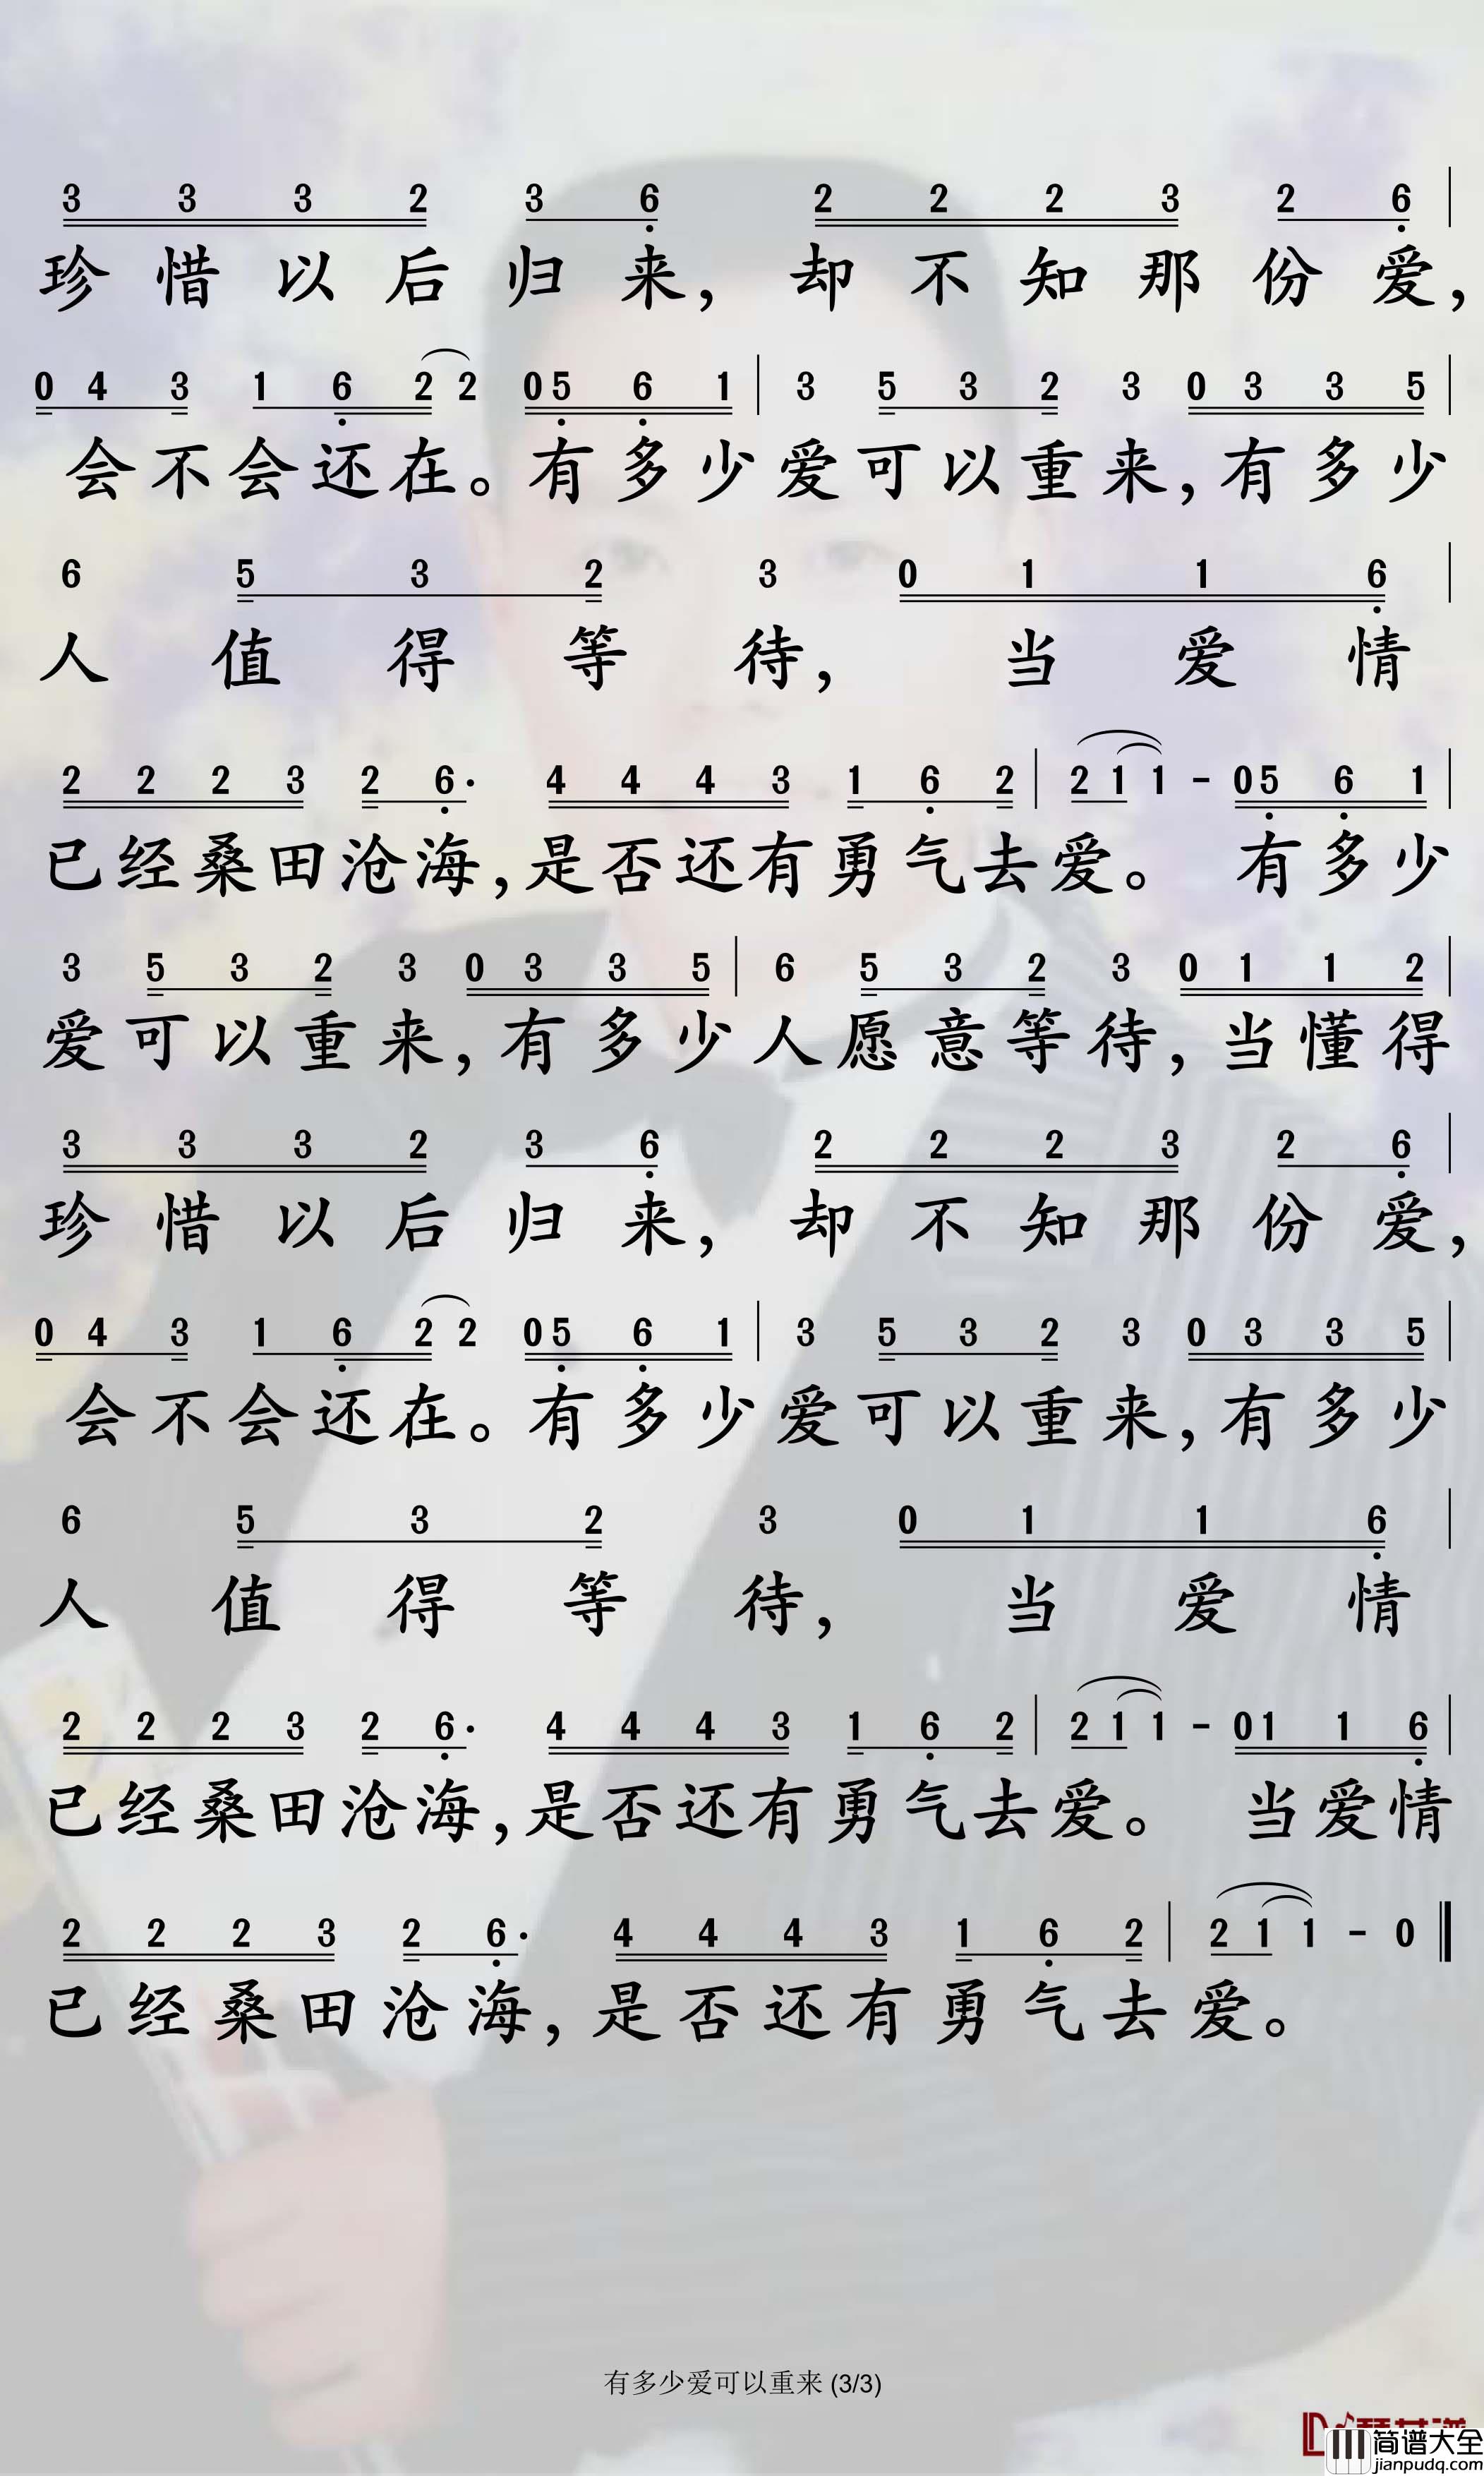 3 3 3 2 3 6 2 2 2 3 2 6
珍惜以后归来，却不知那份爱，
0 4 3 1 6 2 2 0 5 6 1 3 5 3 2 3 0 3 3 5
会不会还在。有多少爱可以重来，有多少
6 5 3 2 3 0 1 1 6
人值得等待，当爱情
2 2 2 3 2 6· 4 4 4 3 1 6 2 2 1 1 - 0 5 6 1
已经桑田沧海，是否还有勇气去爱。有多少
3 5 3 2 3 0 3 3 5 6 5 3 2 3 0 1 1 2
爱可以重来，有多少人愿意等待，当懂得
3 3 3 2 3 6 2 2 2 3 2 6
珍惜以后归来，却不知那份爱，
0 4 3 1 6 2 2 0 5 6 1 3 5 3 2 3 0 3 3 5
会不会还在。有多少爱可以重来，有多少
6 5 3 2 3 0 1 1 6
人值得等待，当爱情
2 2 2 3 2 6· 4 4 4 3 1 6 2 2 1 1 - 0 1 1 6
已经桑田沧海，是否还有勇气去爱。当爱情
2 2 2 3 2 6· 4 4 4 3 1 6 2 2 1 1 - 0
已经桑田沧海，是否还有勇气去爱。
有多少爱可以重来 (3/3)
简谱大全
jianpudq.com